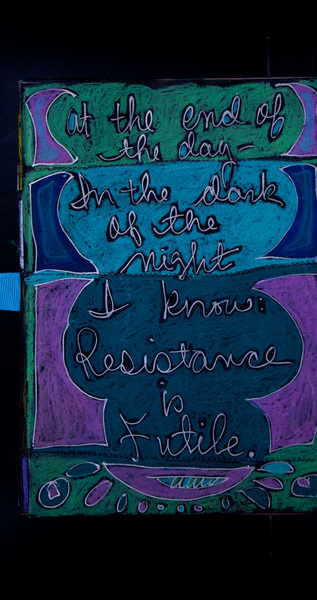 at the end of
the day—
In the dark
of the
night
I know:
Resistance
is
Futile.